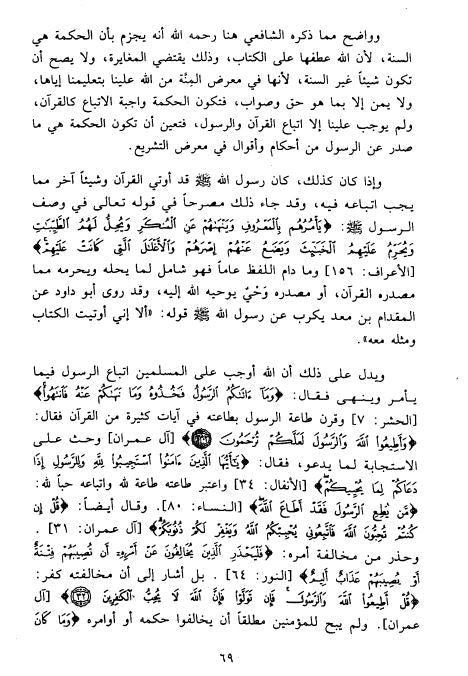 وواضح مما ذكره الشافعي هنا رحمه الله أنه يجزم بأن الحكمة هي
السنة، لأن الله عطفها على الكتاب، وذلك يقتضي المغايرة، ولا يصح أن
تكون شيئاً غير السنة، لأنها في معرض المِنَّة من الله علينا بتعليمنا إياها،
ولا يمن إلا بما هو حق وصواب، فتكون الحكمة واجبة الاتباع كالقرآن،
ولم يوجب علينا إلا اتباع القرآن والرسول، فتعين أن تكون الحكمة هي ما
صدر عن الرسول من أحكام وأقوال في معرض التشريع.
وإذا كان كذلك، كان رسول الله ﷺ قد أوتي القرآن وشيئاً آخر مما
يجب اتباعه فيه، وقد جاء ذلك مصرحاً في قوله تعالى في وصف
الرسول ﷺ: ﴿يَأْمُرُهُم بِالْمَعْرُوفِ وَيَنْهَاهُمْ عَنِ الْمُنكَرِ وَيُحِلُّ لَهُمُ الطَّيِّبَاتِ
وَيُحَرِّمُ عَلَيْهِمُ الْخَبَائِثَ وَيَضَعُ عَنْهُمْ إِصْرَهُمْ وَالْأَغْلَالَ الَّتِي كَانَتْ عَلَيْهِمْ﴾
[الأعراف: ١٥٦] وما دام اللفظ عاماً فهو شامل لما يحله ويحرمه مما
مصدره القرآن، أو مصدره وَحْيٌ يوحيه الله إليه، وقد روى أبو داود عن
المقدام بن معد يكرب عن رسول الله ﷺ قوله: «ألا إني أوتيت الكتاب
ومثله معه».
ويدل على ذلك أن الله أوجب على المسلمين اتباع الرسول فيما
يأمر وينهى فقال: ﴿وَمَا آتَاكُمُ الرَّسُولُ فَخُذُوهُ وَمَا نَهَاكُمْ عَنْهُ فَانتَهُوا﴾
[الحشر: ٧] وقرن طاعة الرسول بطاعته في آيات كثيرة من القرآن فقال:
﴿وَأَطِيعُوا اللَّهَ وَالرَّسُولَ لَعَلَّكُمْ تُرْحَمُونَ ١٣٢﴾ [آل عمران] وحث على
الاستجابة لما يدعو، فقال: ﴿يَا أَيُّهَا الَّذِينَ آمَنُوا اسْتَجِيبُوا لِلَّهِ وَلِلرَّسُولِ إِذَا
دَعَاكُمْ لِمَا يُحْيِيكُمْ﴾ [الأنفال: ٢٤] واعتبر طاعته طاعة لله واتباعه حباً لله:
﴿مَّن يُطِعِ الرَّسُولَ فَقَدْ أَطَاعَ اللَّهَ﴾ [النساء: ٨٠]. وقال أيضاً: ﴿قُلْ إِن
كُنتُمْ تُحِبُّونَ اللَّهَ فَاتَّبِعُونِي يُحْبِبْكُمُ اللَّهُ وَيَغْفِرْ لَكُمْ ذُنُوبَكُمْ﴾ [آل عمران: ٣١].
وحذر من مخالفة أمره: ﴿فَلْيَحْذَرِ الَّذِينَ يُخَالِفُونَ عَنْ أَمْرِهِ أَن تُصِيبَهُمْ فِتْنَةٌ
أَوْ يُصِيبَهُمْ عَذَابٌ أَلِيمٌ﴾ [النور: ٦٤]. بل أشار إلى أن مخالفته كفر:
﴿قُلْ أَطِيعُوا اللَّهَ وَالرَّسُولَ فَإِن تَوَلَّوْا فَإِنَّ اللَّهَ لَا يُحِبُّ الْكَافِرِينَ ٣٢﴾ [آل
عمران]. ولم يبح للمؤمنين مطلقاً أن يخالفوا حكمه أو أوامره ﴿وَمَا كَانَ
٦٩